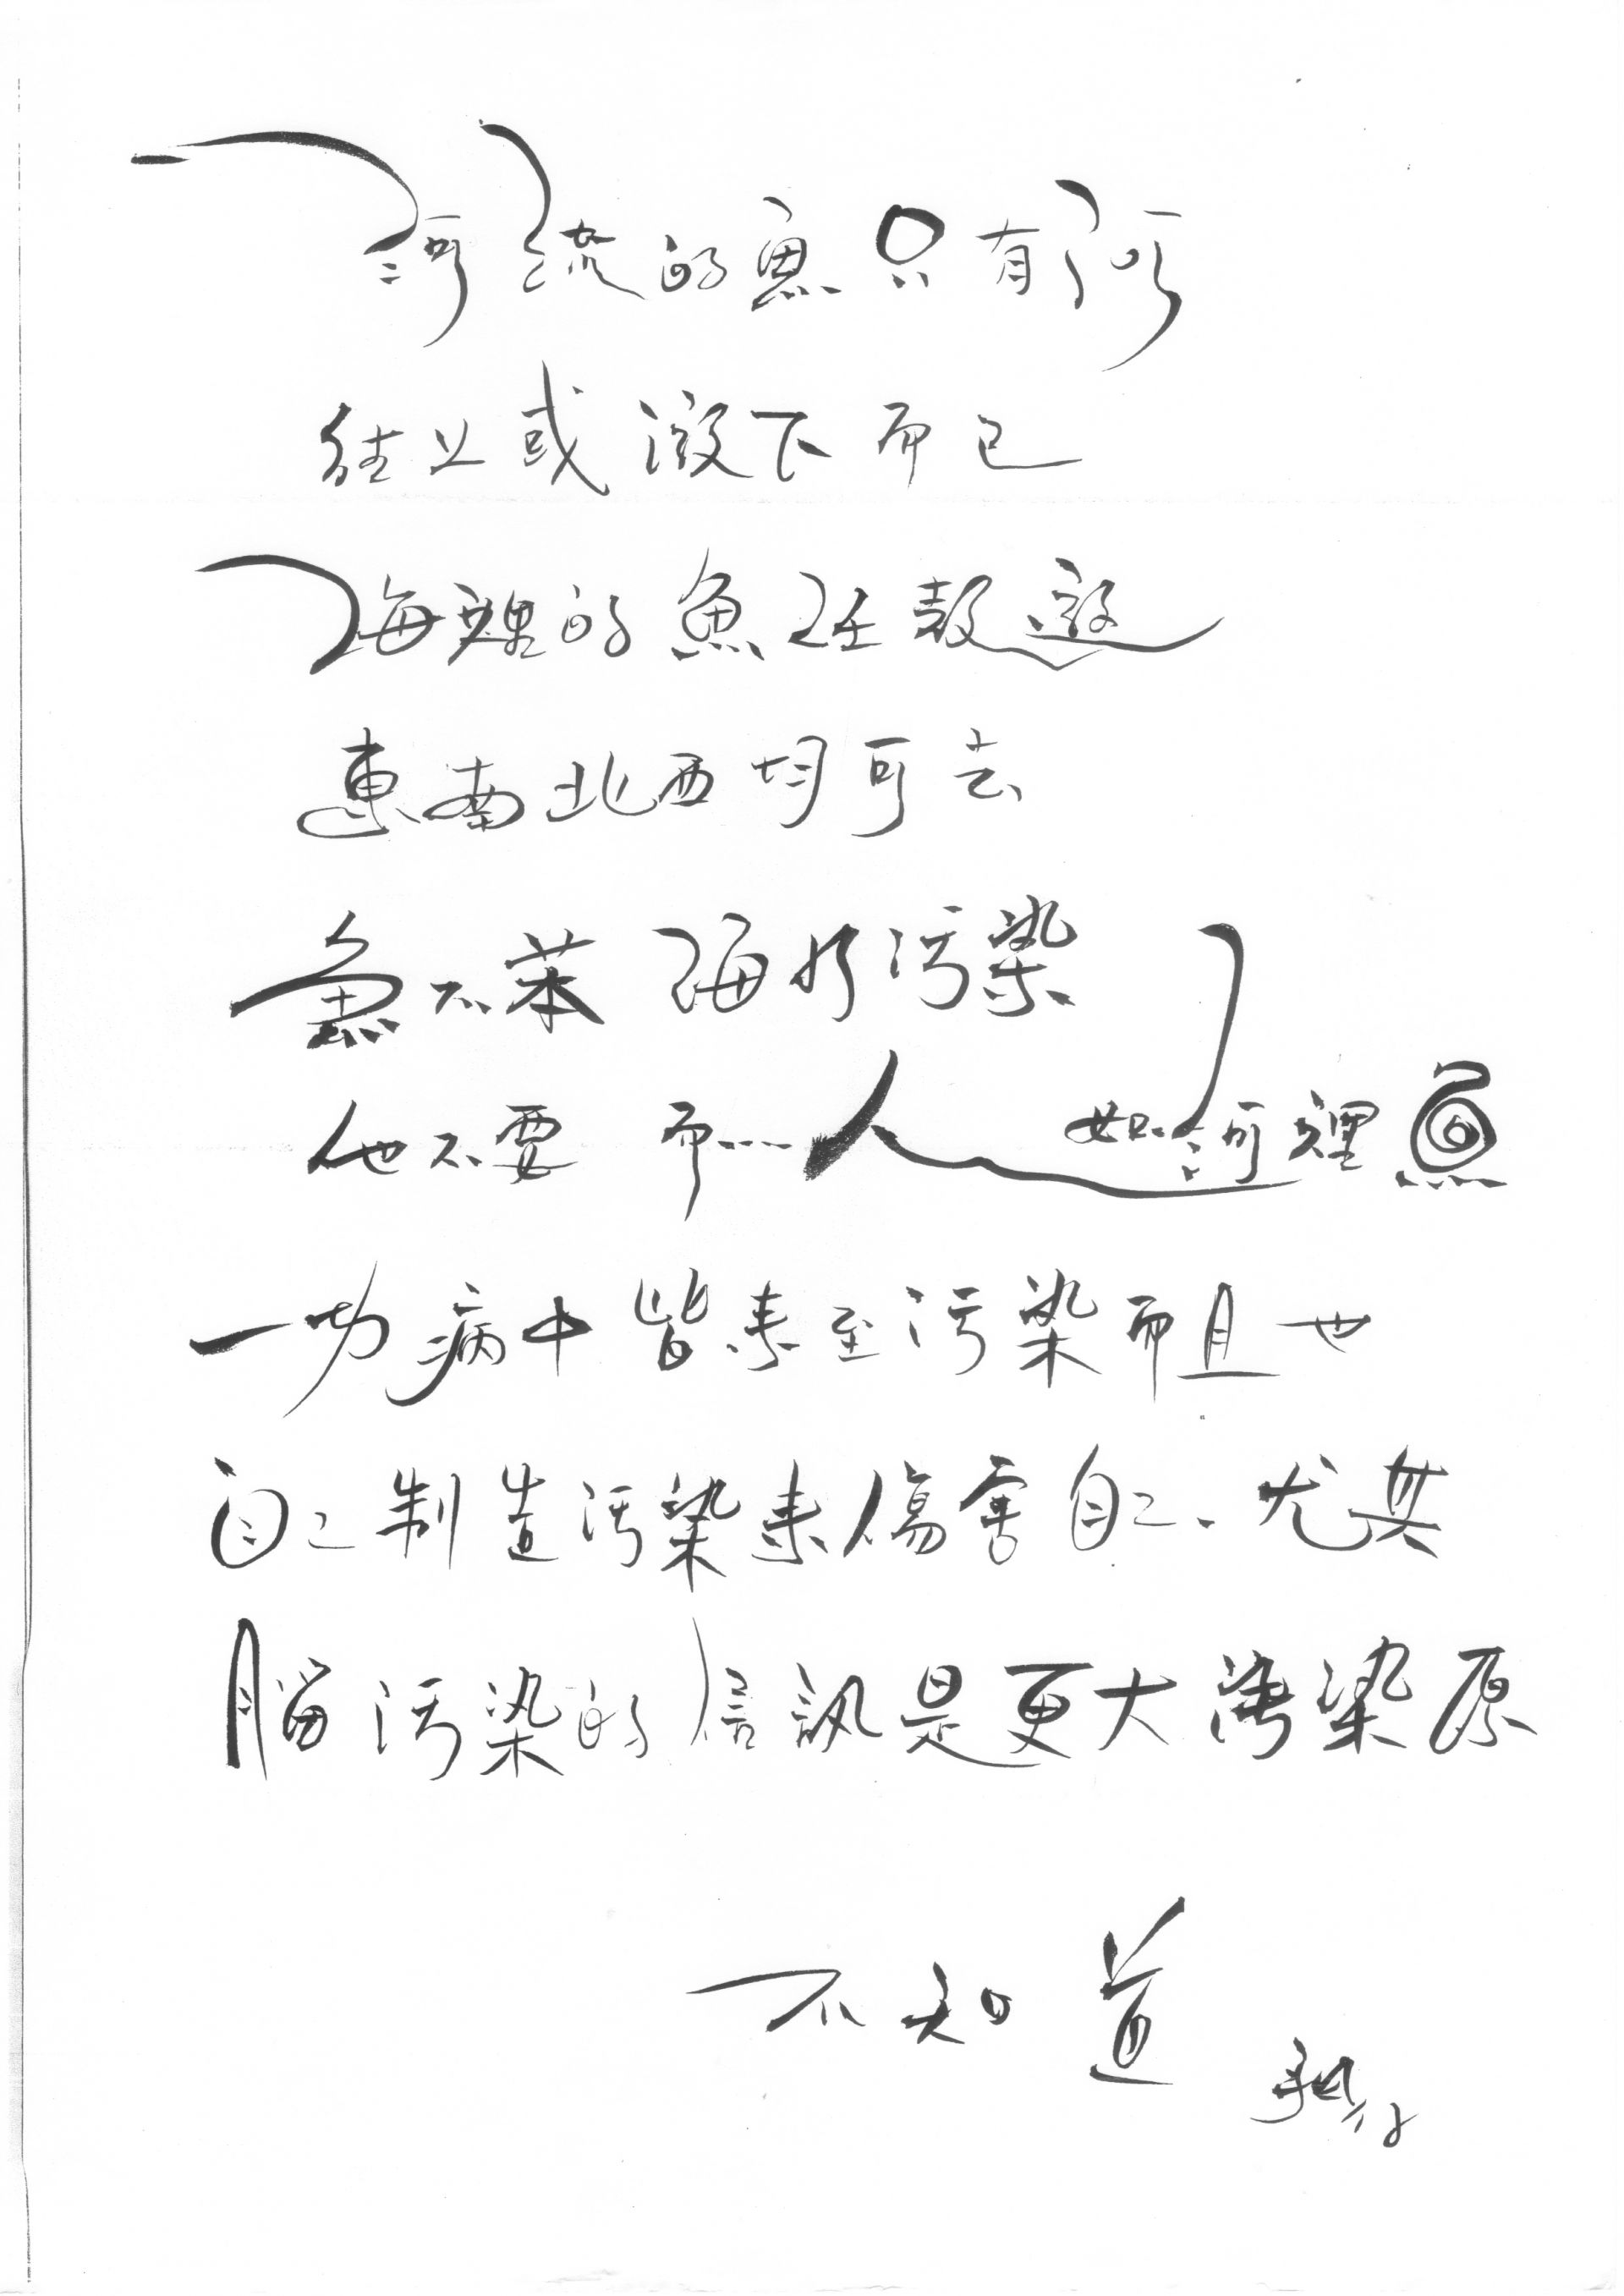 河流的魚只有河
往上或游下而已
海裡的魚任遨遊
東南北西均可去
魚不苯 海水污染
他不要 而……人 如河裡魚
一切病中皆來至污染而且也
自己制造污染來傷害自己、尤其
腦污染的信訊是更大污染原
不知道